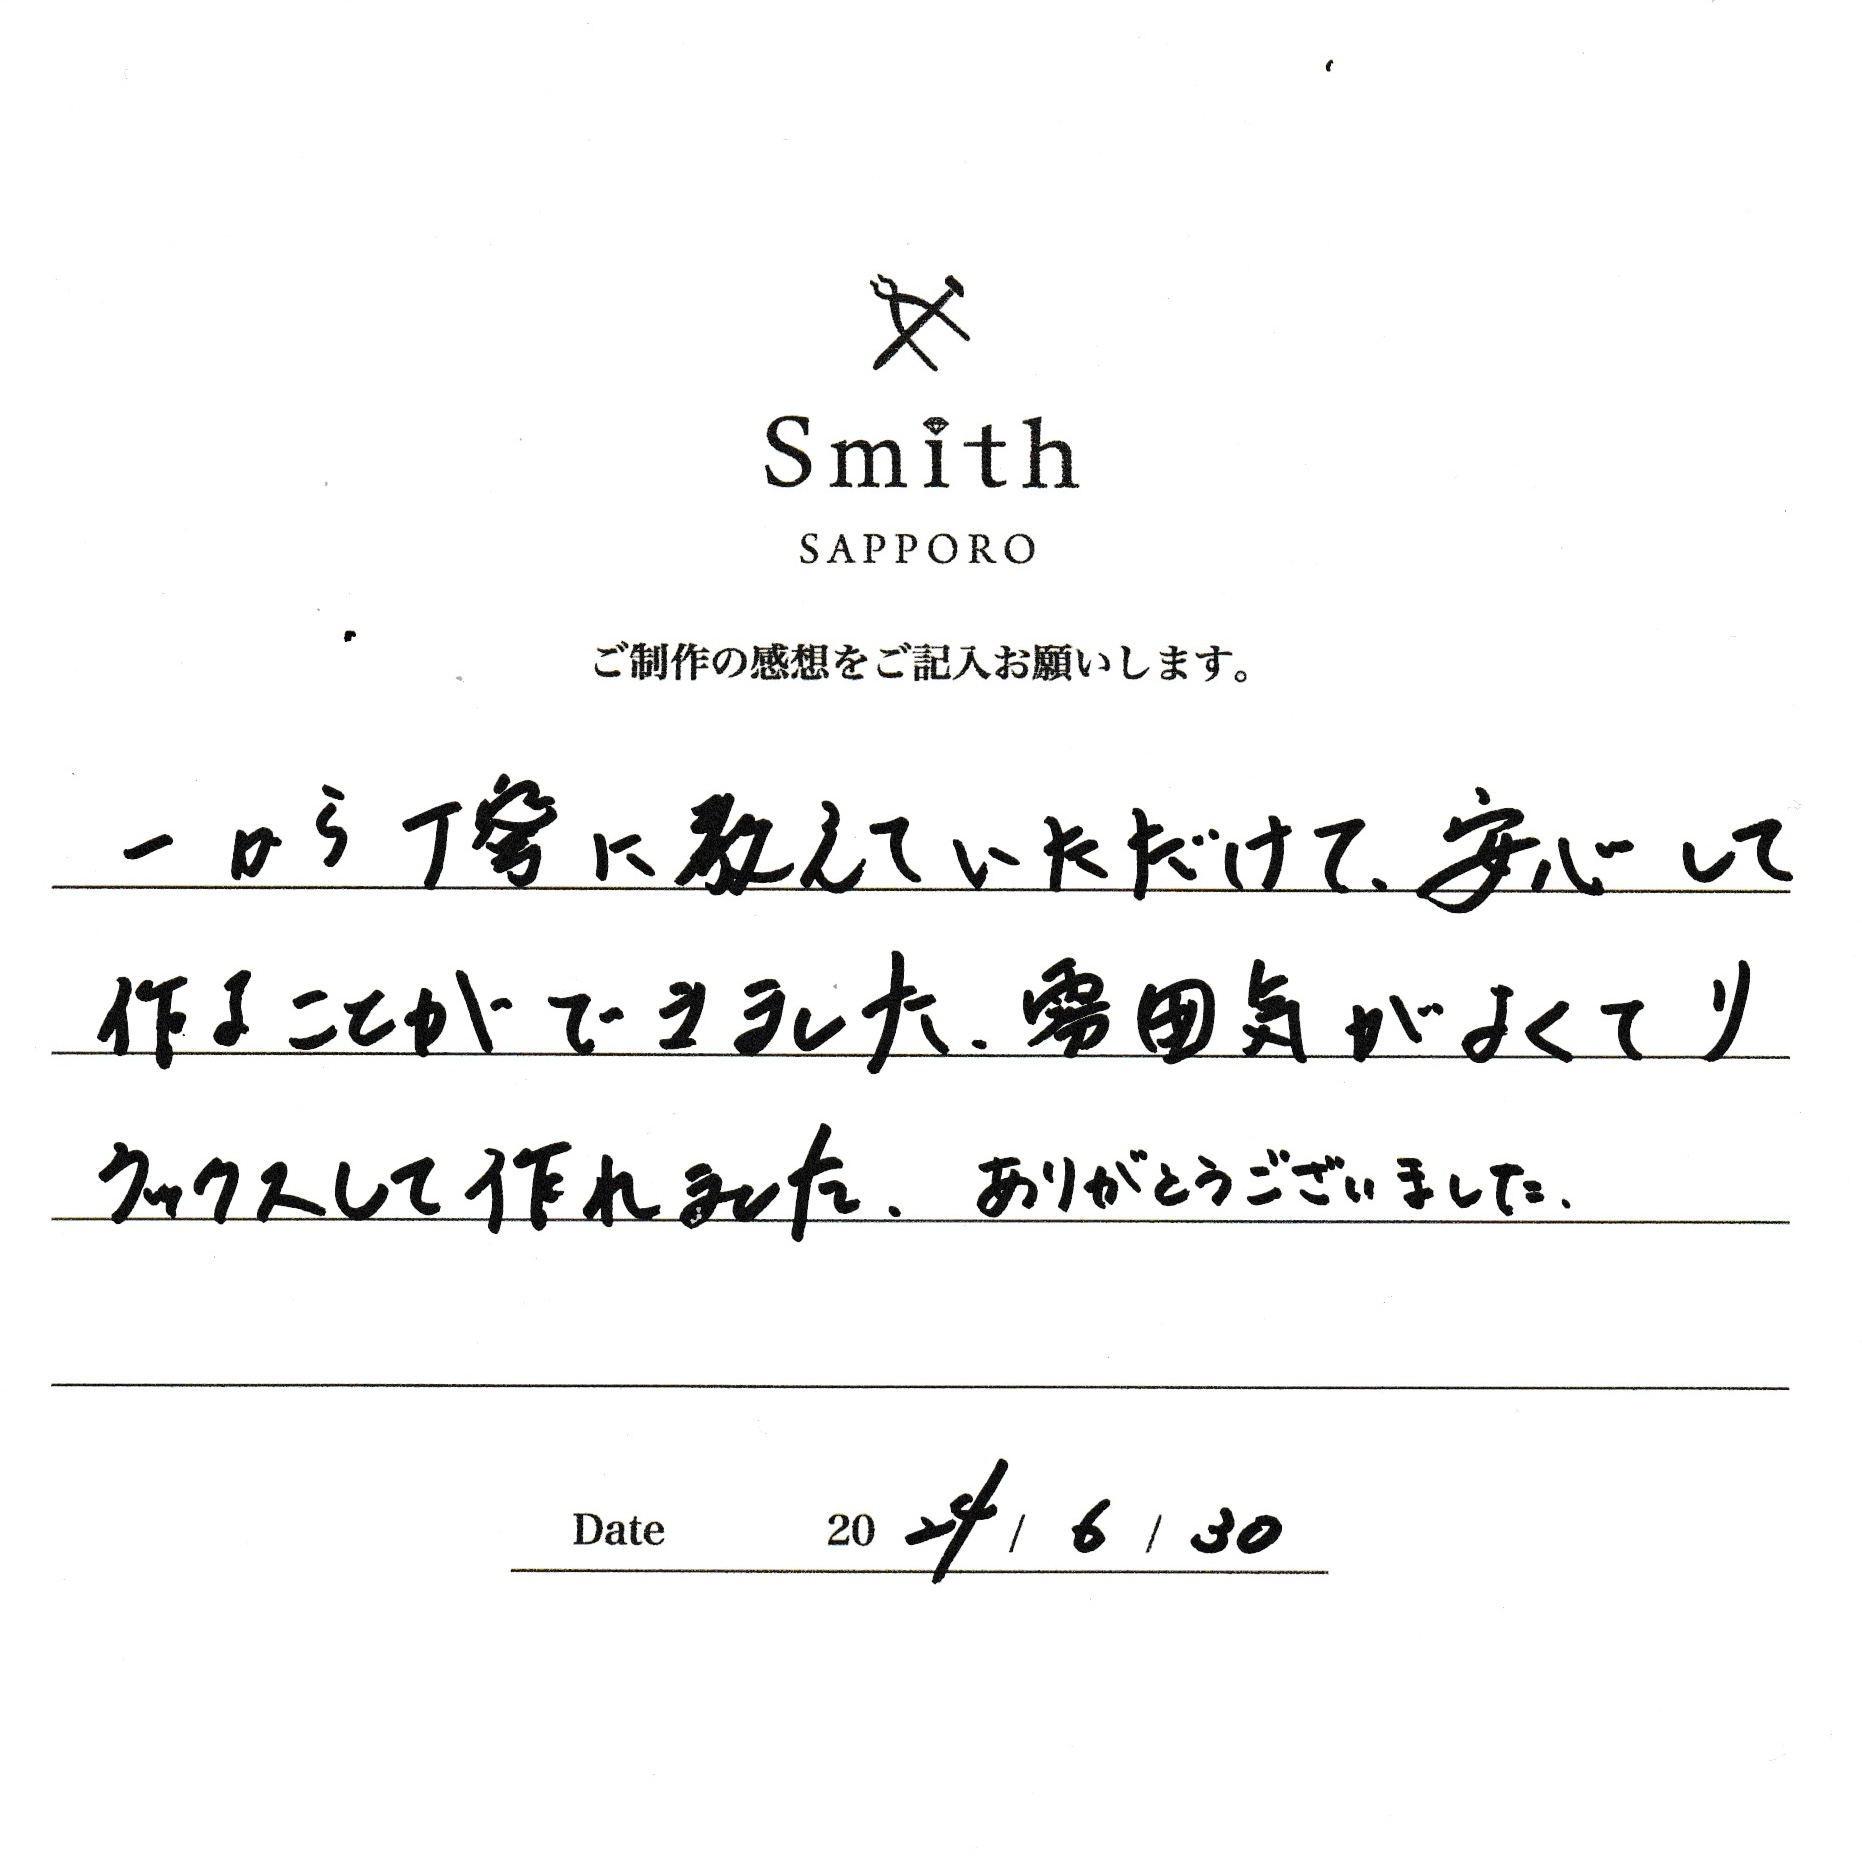 Smith
SAPPORO
ご制作の感想をご記入お願いします。
一から丁寧に教えていただけて、安心して
作ることができました。雰囲気がよくてリ
ラックスして作れました。ありがとうございました。
Date 2024/6/30